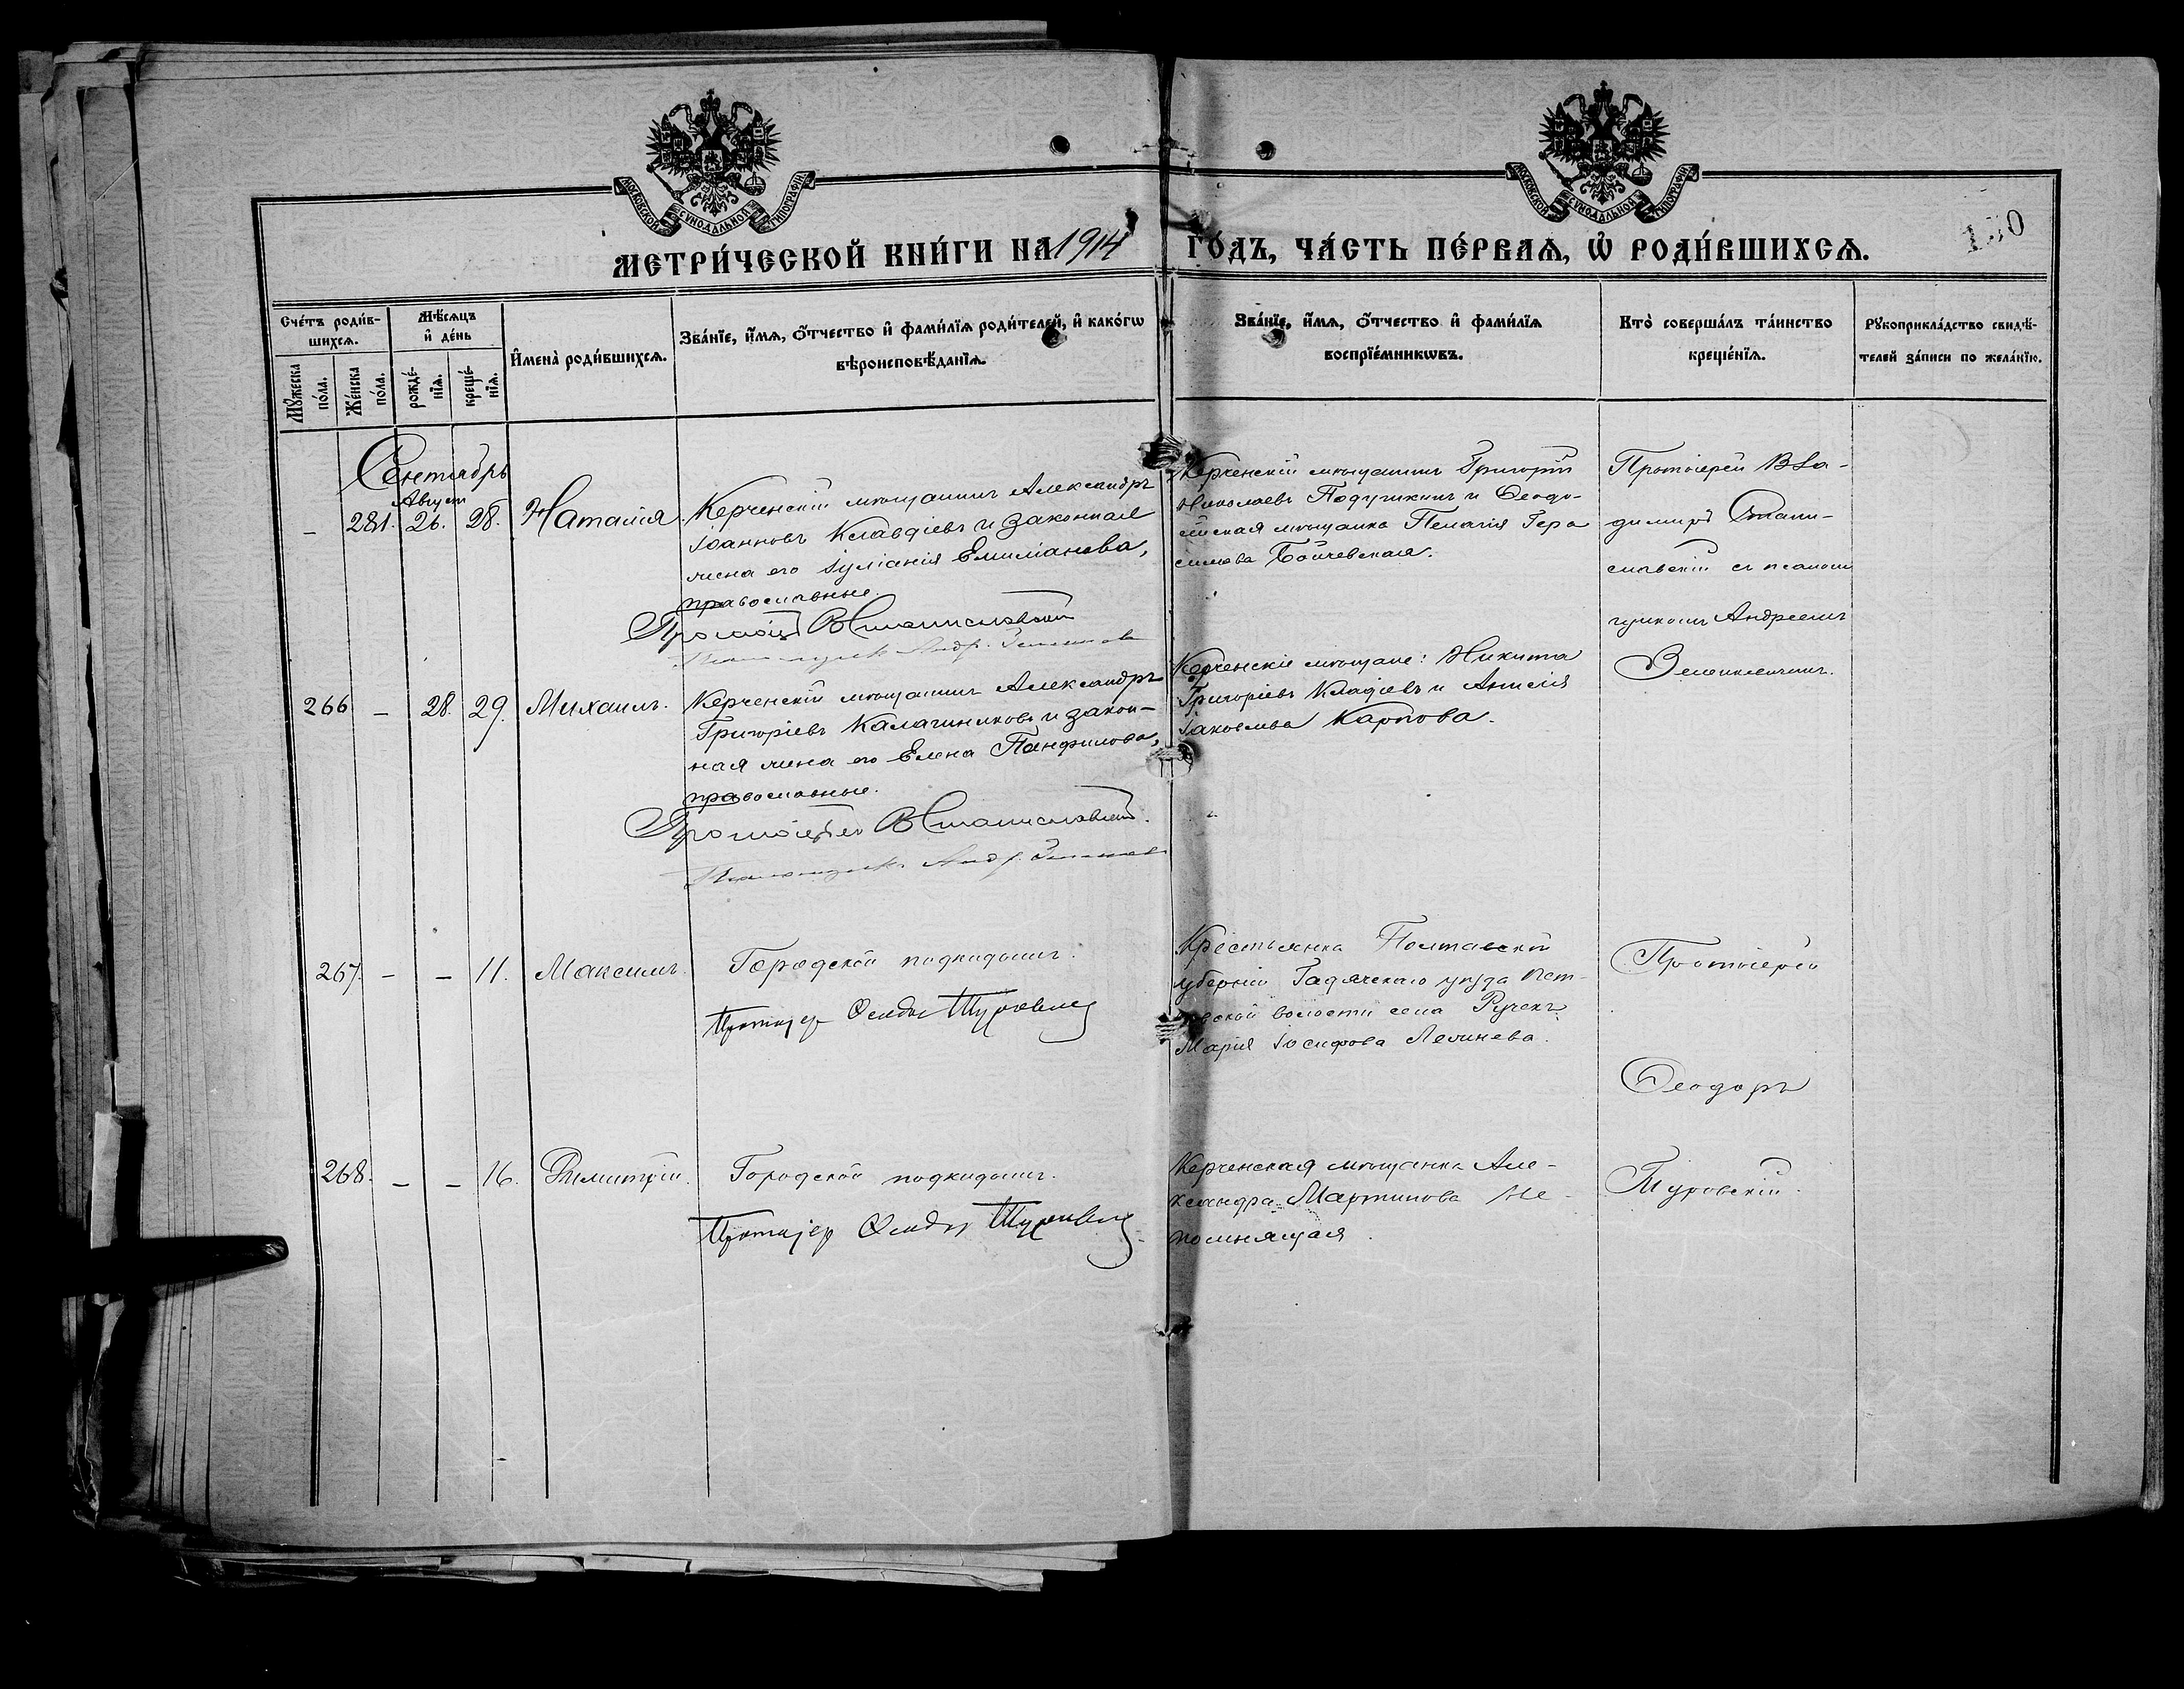 МОСКОВСКОЙ СѴНОДАЛЬНОЙ ТИПОГРАФІИ
МОСКОВСКОЙ СѴНОДАЛЬНОЙ ТИПОГРАФІИ
МЕТРИ́ЧЕСКОЙ КНИ́ГИ НА 1914 ГО́ДЪ, ЧА́СТЬ ПЕ́РВАѦ, Ѡ҆ РОДИ́ВШИХСѦ.
Сче́тъ роди́в-
шихсѧ.
Мꙋ́жеска по́ла.
Же́нска по́ла.
Мѣ́сѧцъ
и҆ де́нь
рожде́-
нїѧ.
креще́-
нїѧ.
И҆мена̀ роди́вшихсѧ.
Зва́нїе, и҆́мѧ, ѻ҆́тчество и҆ фами́лїѧ роди́телей, и҆ како́гѡ
вѣроисповѣ́данїѧ.
Зва́нїе, и҆́мѧ, ѻ҆́тчество и҆ фами́лїѧ
воспрїе́мникѡвъ.
Кто̀ соверша́лъ та́инство
креще́нїѧ.
Рꙋкоприкла́дство свидѣ́-
телей за́писи по жела́нїю.
Сентябрь
Август
– 281. 26. 28. Наталія.
Керченскій мѣщанинъ Александръ
Іоанновъ Клавдіевъ и законная
жена его Іуліанія Емиліанова,
православные.
Протоіер ВСтаниславскій
Керченскій мѣщанинъ Григорій
Николаевъ Подучикинъ и Ѳеодо-
сійская мѣщанка Пелагія Гера
симова Бойчевская.
Протоіерей Вла-
димиръ Стани-
славскій съ псалом
щикомъ Андреемъ
266 – 28. 29. Михаилъ.
Керченскій мѣщанинъ Александръ
Григоріевъ Калачниковъ и закон-
ная жена его Елена Панфилова,
православные.
Протоіерей ВСтаниславскій.
Керченскіе мѣщане: Никита
Григоріевъ Кладіевъ и Анисія
Іаковлева Карпова.
267. – – 11. Максимъ.
Городской подкидышъ.
Протоіер Ѳеодор Туровскій
Крестьянка Полтавской
губерніи Гадячскаго уѣзда Пет-
ровской волости села Ручекъ
Марія Іосифова
Протоіерей
Ѳеодоръ
Туровскій.
268. – – 16. Димитрій.
Городской подкидышъ.
Протоіер Ѳеодор Туровскій
Керченская мѣщанка Але-
ксандра Мартинова Не-
помнящая.